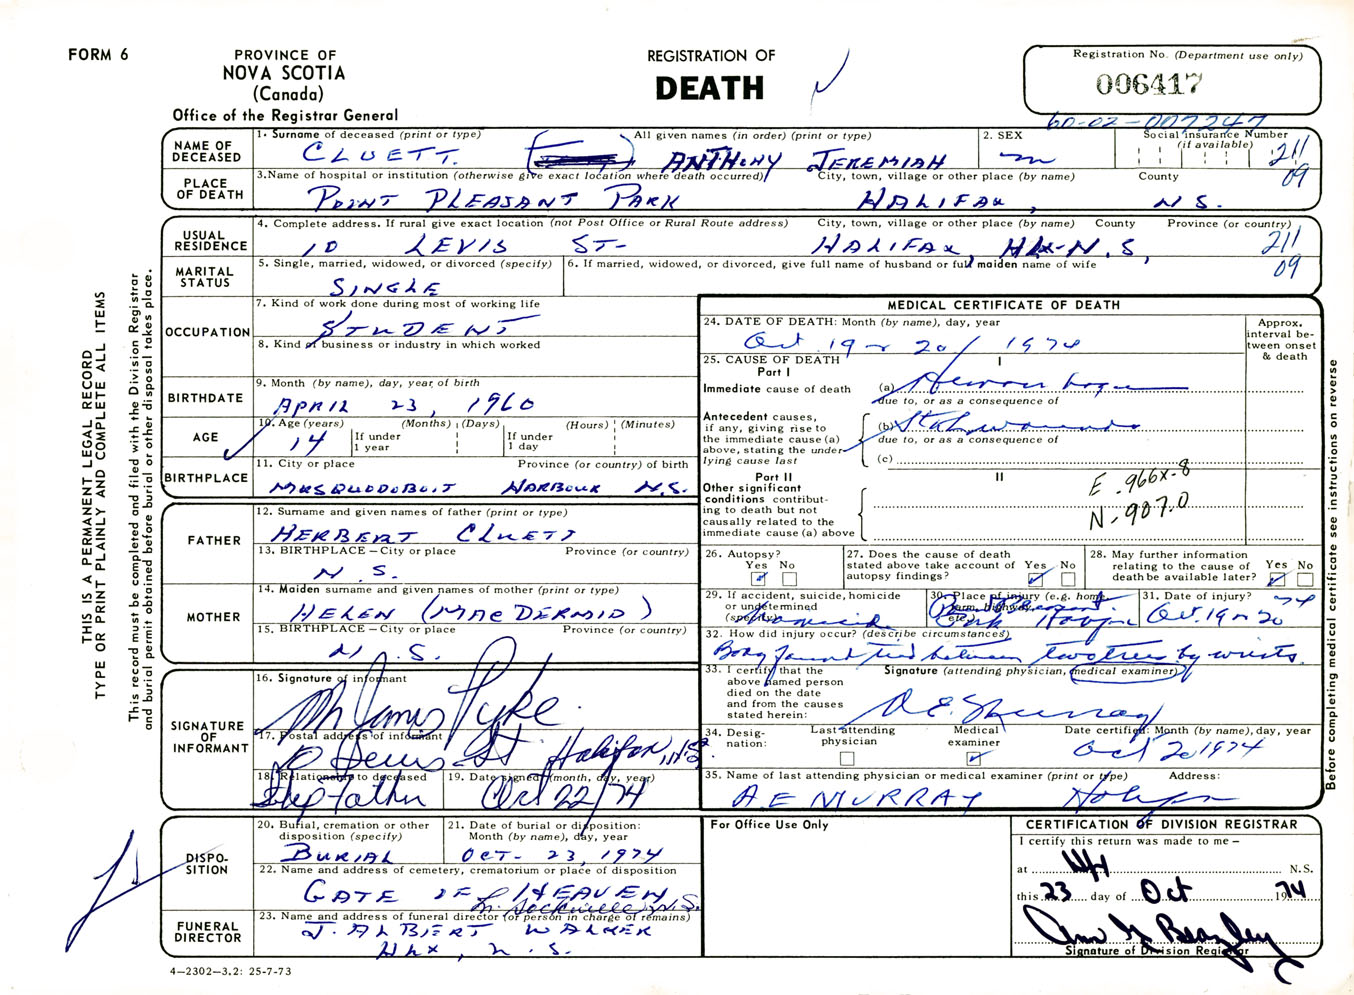 FORM 6
PROVINCE OF
NOVA SCOTIA
(Canada)
Office of the Registrar General
REGISTRATION OF
DEATH
Registration No. (Department use only)
006417
60-02-007247
NAME OF DECEASED
1. Surname of deceased (print or type)
All given names (in order) (print or type)
CLUETT. ANTHONY JEREMIAH
2. SEX
m
Social insurance Number
(if available)
211
09
PLACE OF DEATH
3. Name of hospital or institution (otherwise give exact location where death occurred)
City, town, village or other place (by name)
County
POINT PLEASANT PARK HALIFAX, N.S.
USUAL RESIDENCE
4. Complete address. If rural give exact location (not Post Office or Rural Route address)
City, town, village or other place (by name)
County
Province (or country)
10 LEVIS ST- HALIFAX, HLX-N.S,
211
09
MARITAL STATUS
5. Single, married, widowed, or divorced (specify)
SINGLE
6. If married, widowed, or divorced, give full name of husband or full maiden name of wife
OCCUPATION
7. Kind of work done during most of working life
STUDENT
8. Kind of business or industry in which worked
BIRTHDATE
9. Month (by name), day, year of birth
APRIL 23, 1960
AGE
10. Age (years)
(Months)
(Days)
(Hours)
(Minutes)
14
If under 1 year
If under 1 day
BIRTHPLACE
11. City or place
Province (or country) of birth
MUSQUODOBOIT HARBOUR N.S.
FATHER
12. Surname and given names of father (print or type)
HERBERT CLUETT
13. BIRTHPLACE – City or place
Province (or country)
N.S.
MOTHER
14. Maiden surname and given names of mother (print or type)
HELEN (MACDERMID)
15. BIRTHPLACE – City or place
Province (or country)
N.S.
SIGNATURE OF INFORMANT
16. Signature of informant
James Pyke
17. Postal address of informant
10 Levis St Halifax, N.S.
18. Relationship to deceased
Step father
19. Date signed (month, day, year)
Oct 22/74
DISPO-
SITION
20. Burial, cremation or other disposition (specify)
BURIAL
21. Date of burial or disposition:
Month (by name), day, year
OCT- 23, 1974
22. Name and address of cemetery, crematorium or place of disposition
GATE OF HEAVEN
Sackville N.S.
FUNERAL DIRECTOR
23. Name and address of funeral director (or person in charge of remains)
J. ALBERT WALKER
HLX, N.S.
4—2302—3.2: 25-7-73
THIS IS A PERMANENT LEGAL RECORD
TYPE OR PRINT PLAINLY AND COMPLETE ALL ITEMS
This record must be completed and filed with the Division Registrar
and burial permit obtained before burial or other disposal takes place.
MEDICAL CERTIFICATE OF DEATH
24. DATE OF DEATH: Month (by name), day, year
Oct. 19 or 20/1974
Approx. interval be-
tween onset & death
25. CAUSE OF DEATH
Part I
I
Immediate cause of death
(a)
due to, or as a consequence of
Antecedent causes,
if any, giving rise to
the immediate cause (a)
above, stating the under-
lying cause last
(b) Stab wounds
due to, or as a consequence of
(c)
Part II
II
Other significant
conditions contribut-
ing to death but not
causally related to the
immediate cause (a) above
E.966X-8
N-907.0
26. Autopsy?
Yes No
27. Does the cause of death
stated above take account of
autopsy findings?
Yes No
28. May further information
relating to the cause of
death be available later?
Yes No
29. If accident, suicide, homicide
or undetermined
(specify)
homicide
30. Place of injury (e.g. home,
farm, highway,
etc.)
Pt Pleasant
Park Halifax
31. Date of injury?
Oct. 19 or 20 74
32. How did injury occur? (describe circumstances)
Body found tied between two trees by wrists.
33. I certify that the
above named person
died on the date
and from the causes
stated herein:
Signature (attending physician, medical examiner)
A.E. Murray
34. Desig-
nation:
Last attending
physician
Medical
examiner
Date certified: Month (by name), day, year
Oct 20 1974
35. Name of last attending physician or medical examiner (print or type)
Address:
A E MURRAY Halifax
For Office Use Only
CERTIFICATION OF DIVISION REGISTRAR
I certify this return was made to me –
at Hfx N.S.
this 23 day of Oct 1974
Signature of Division Registrar
Before completing medical certificate see instructions on reverse